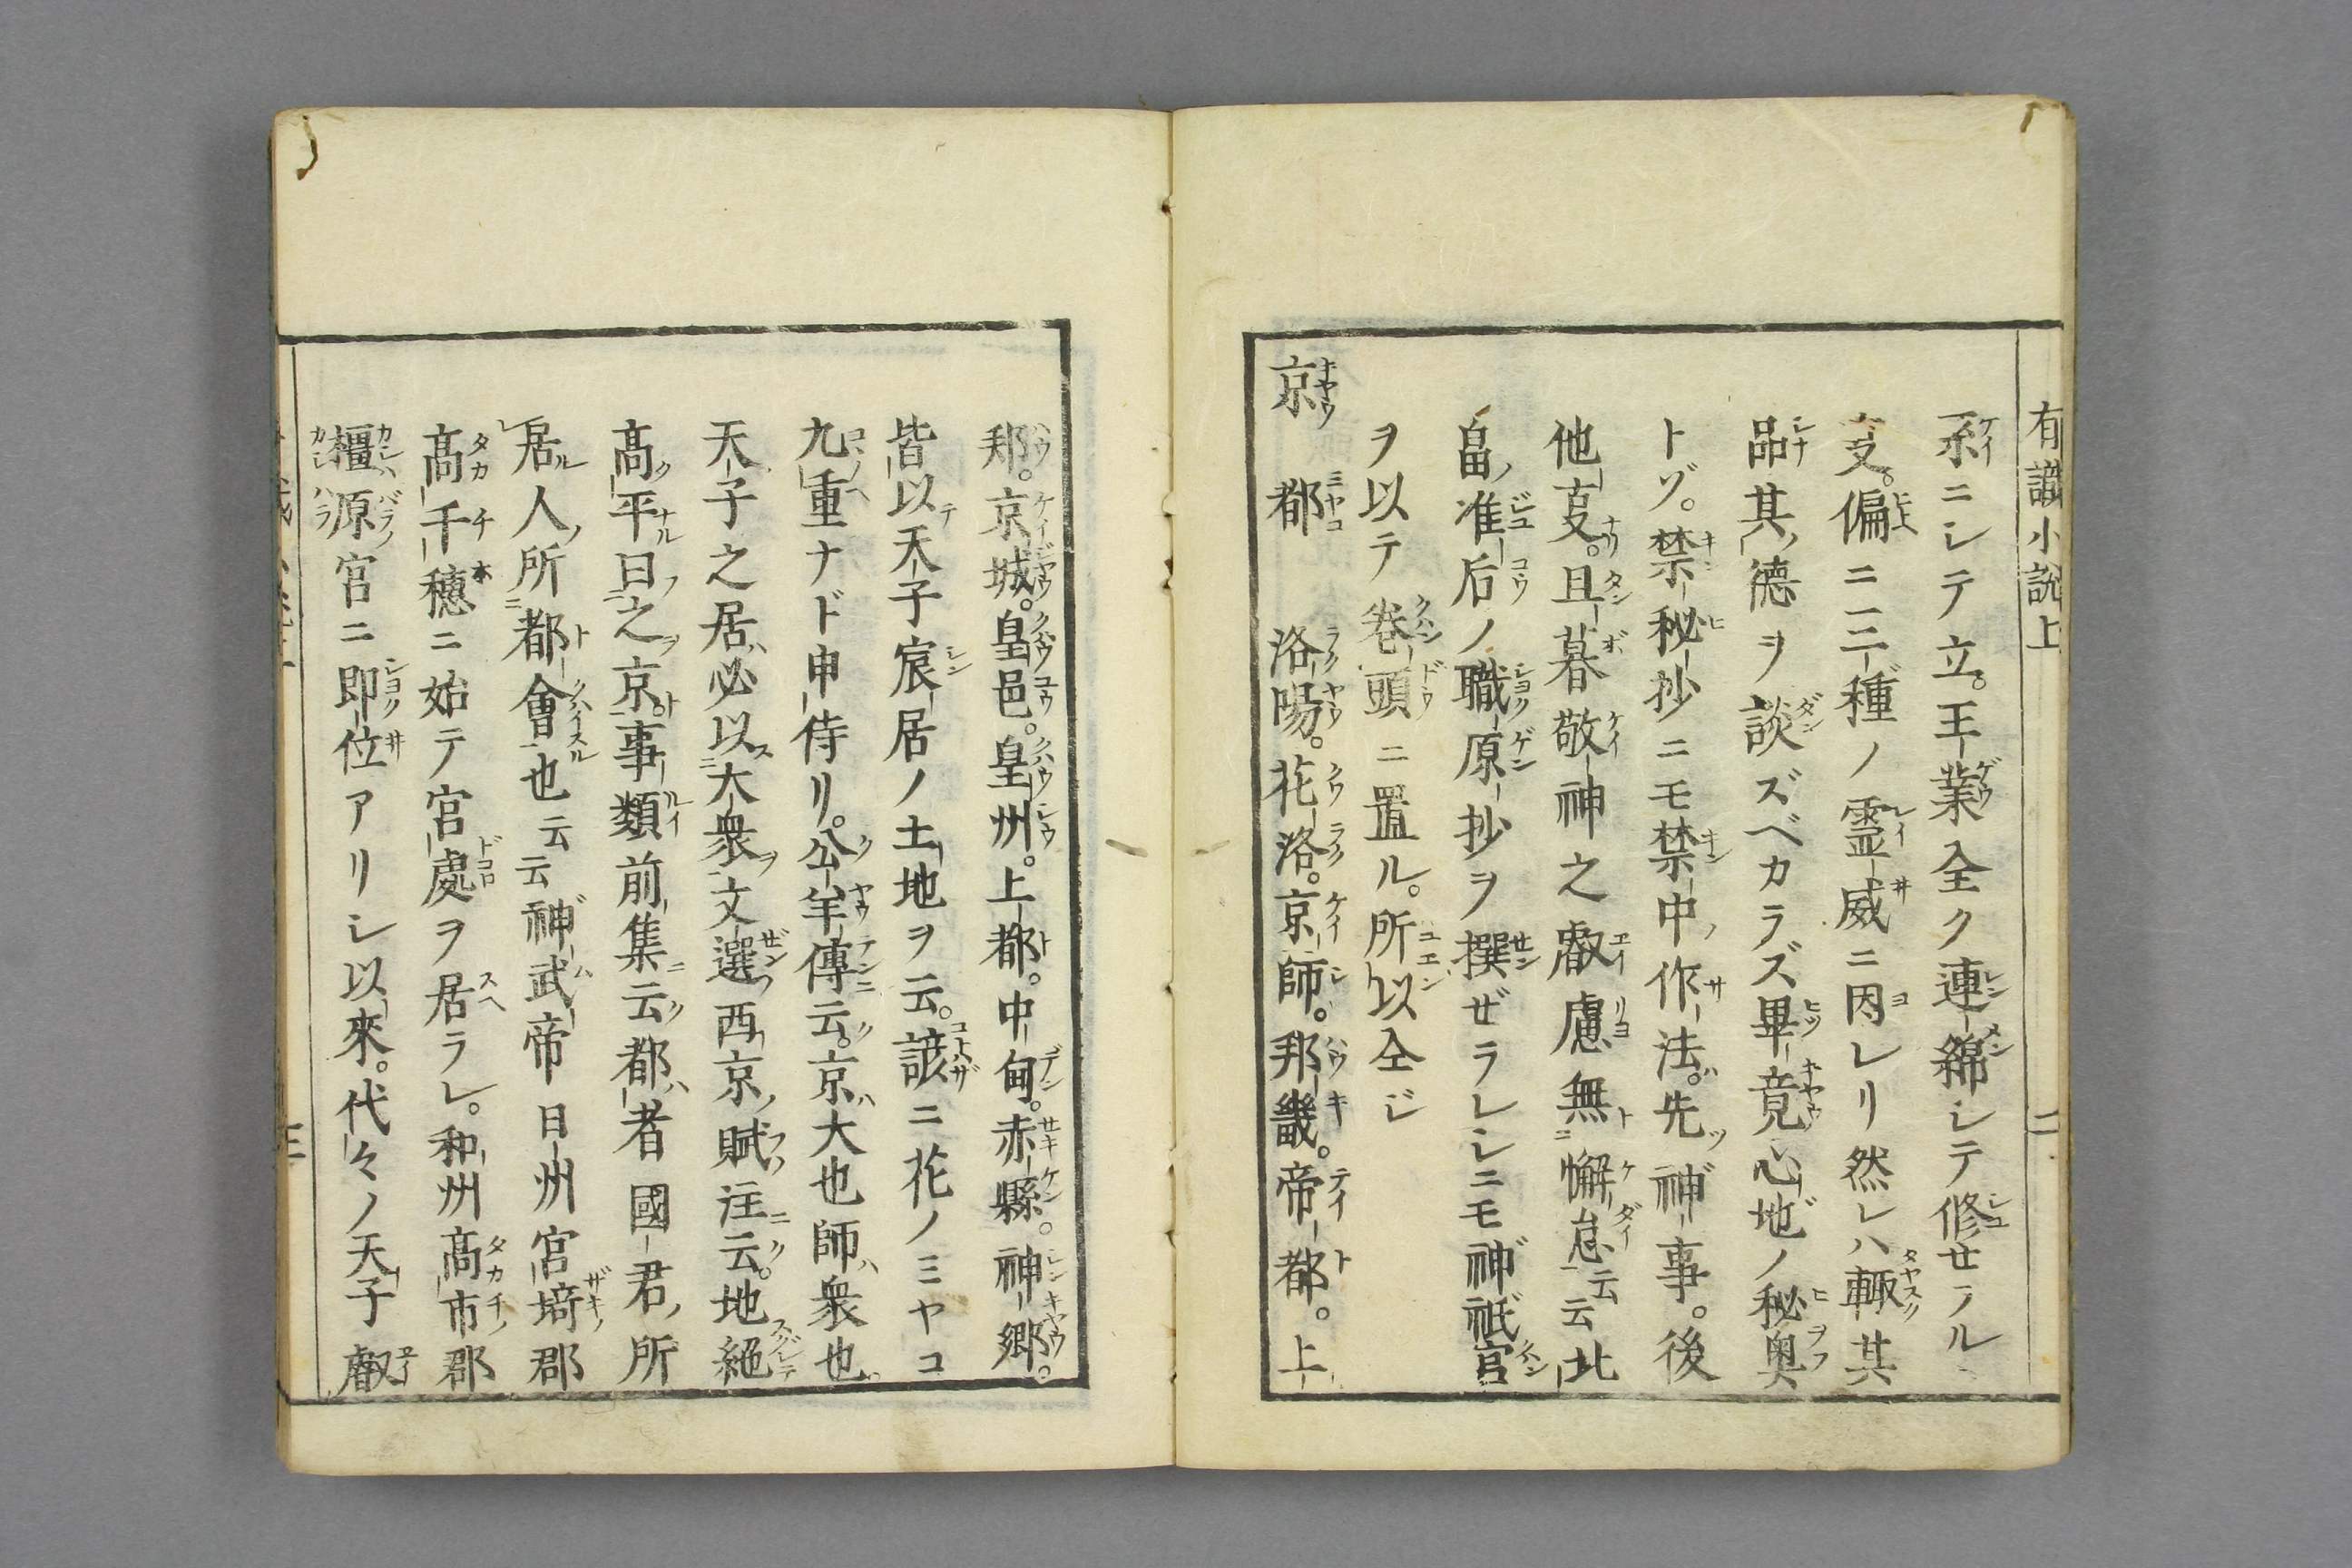 有識小説上
二
系ニシテ立。王業全ク連綿シテ修セラル
叓。偏ニ三種ノ霊威ニ因レリ然レハ輙其
品其ノ德ヲ談ズベカラズ畢竟心地ノ秘奥
トゾ。禁秘抄ニモ禁中ノ作法ハ先ツ神事。後
他叓。且暮敬神之叡慮無ト懈怠云云北
畠ノ准后ノ職原抄ヲ撰ゼラレシニモ神祇官
ヲ以テ巻頭ニ置ル。所以仝ジ
京 都 洛陽。花洛。京師。邦畿。帝都。上
邦。京城。皇邑。皇州。上都。中甸。赤縣。神郷。
皆以テ天子宸居ノ土地ヲ云。諺ニ花ノミヤコ
九重ナド申侍リ。公羊傳ニ云ク。京ハ大也師ハ衆也。
天子之居ハ必以ス大衆ヲ文選ノ西京ノ賦ノ注ニ云ク。地絕
高ク平ナル曰フ之ヲ京ト。事類前集ニ云ク都ハ者國君ノ所
居ル人ノ所都會スル也云云神武帝日州宮埼郡
髙千穗ニ始テ宮處ヲ居ラレ。和州髙市郡
橿原ノ宮ニ即位アリシ以來。代々ノ天子叡
三